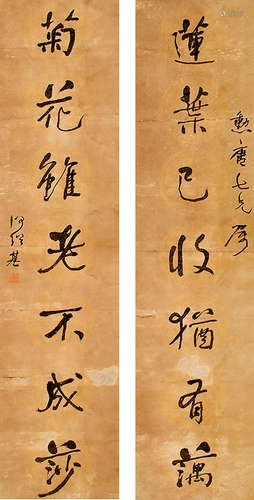 蓮葉已收猶有藕
菊花雖老不成莎
七兄屬
何紹基